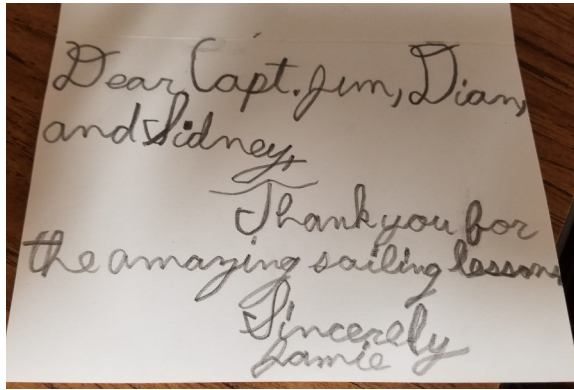 Dear Capt. Jim, Dian,
and Sidney,
Thank you for
the amazing sailing lessons
Sincerely
Jamie